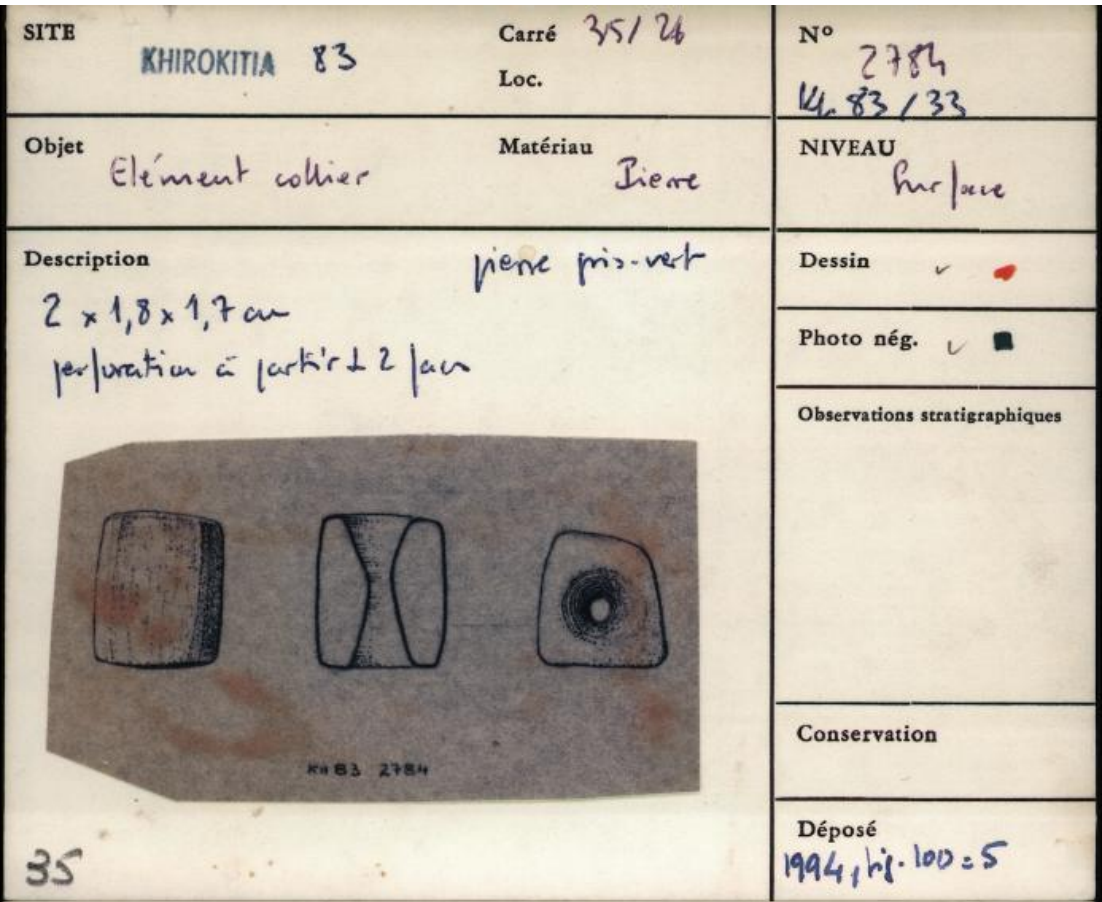 SITE
KHIROKITIA 83
Carré 35/26
Loc.
N°
2784
Kh. 83 / 33
Objet
Elément collier
Matériau
Pierre
NIVEAU
Surface
Description
pierre gris-vert
2 x 1,8 x 1,7 cm
perforation à partir d 2 faces
Dessin
Photo nég.
Observations stratigraphiques
KH 83 2784
Conservation
Déposé
1994, fig. 100 = 5
35